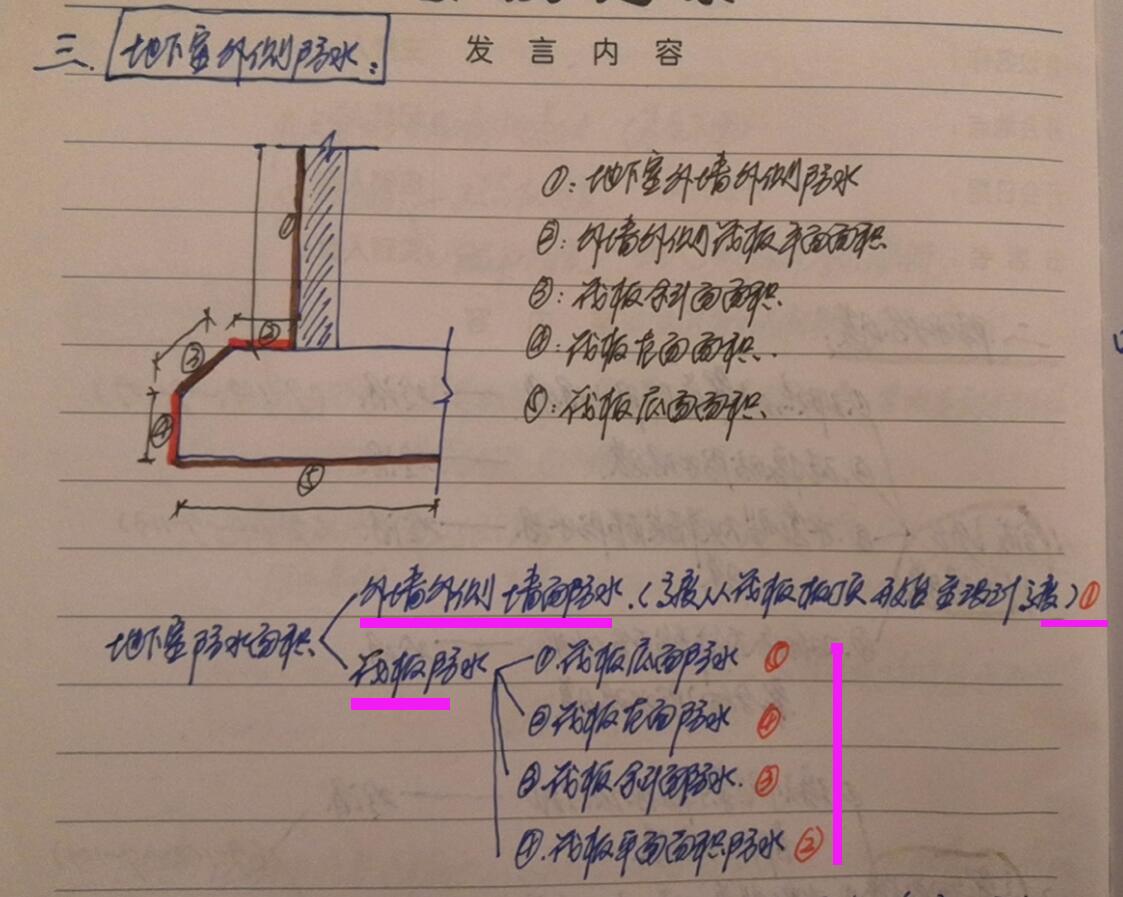 三. 地下室外侧防水:
发言内容
①: 地下室外墙外侧防水
②: 外墙外侧筏板平面面积
③: 筏板斜面面积.
④: 筏板立面面积.
⑤: 筏板底面面积.
①
②
③
④
⑤
地下室防水面积
外墙外侧墙面防水.(高度从筏板板顶开始至设计高度)①
筏板防水
①.筏板底面防水 ⑤
②.筏板立面防水 ④
③.筏板斜面防水. ③
④.筏板平面面积防水 ②